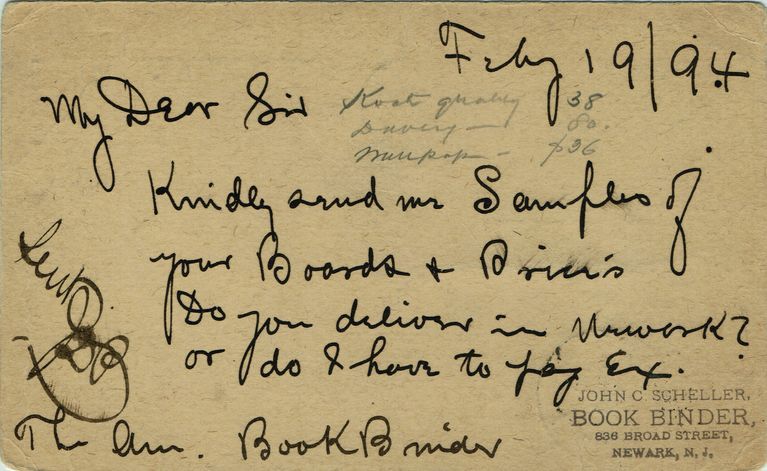 Feby 19/94
My Dear Sir
quality 38
80.
36
Kindly send me Samples of
your Boards & Prices
Do you deliver in Newark?
or do I have to pay Ex.
Sent
The Am. Book Binder
JOHN C. SCHELLER,
BOOK BINDER,
836 BROAD STREET,
NEWARK, N. J.